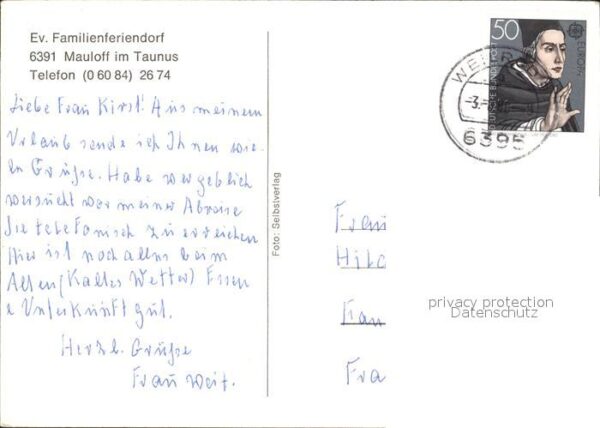 Ev. Familienferiendorf
6391 Mauloff im Taunus
Telefon (0 60 84) 26 74
Liebe Frau Kirst! Aus meinem
Urlaub sende ich Ihnen wie-
der Grüße. Habe vergeblich
versucht vor meiner Abreise
Sie telefonisch zu erreichen
Hier ist noch alles beim
Alten (Kaltes Wetter) Essen
u Unterkunft gut.
Herzl. Grüße
Frau Weit.
Foto: Selbstverlag
50
EUROPA
DEUTSCHE BUNDESPOST
WEILROD
6395
Frau
Frau
Fra
privacy protection
Datenschutz